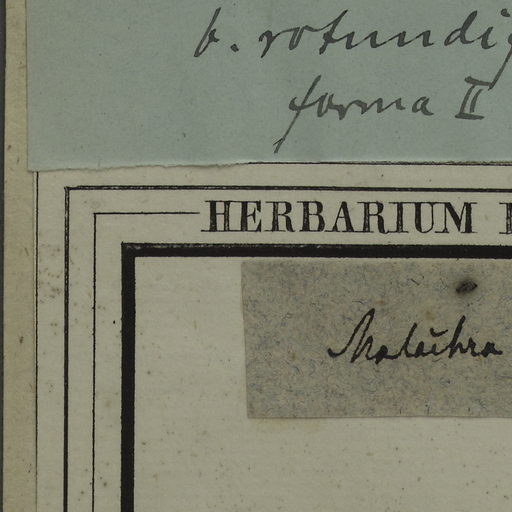 b. rotundi
forma II
HERBARIUM
Malachra